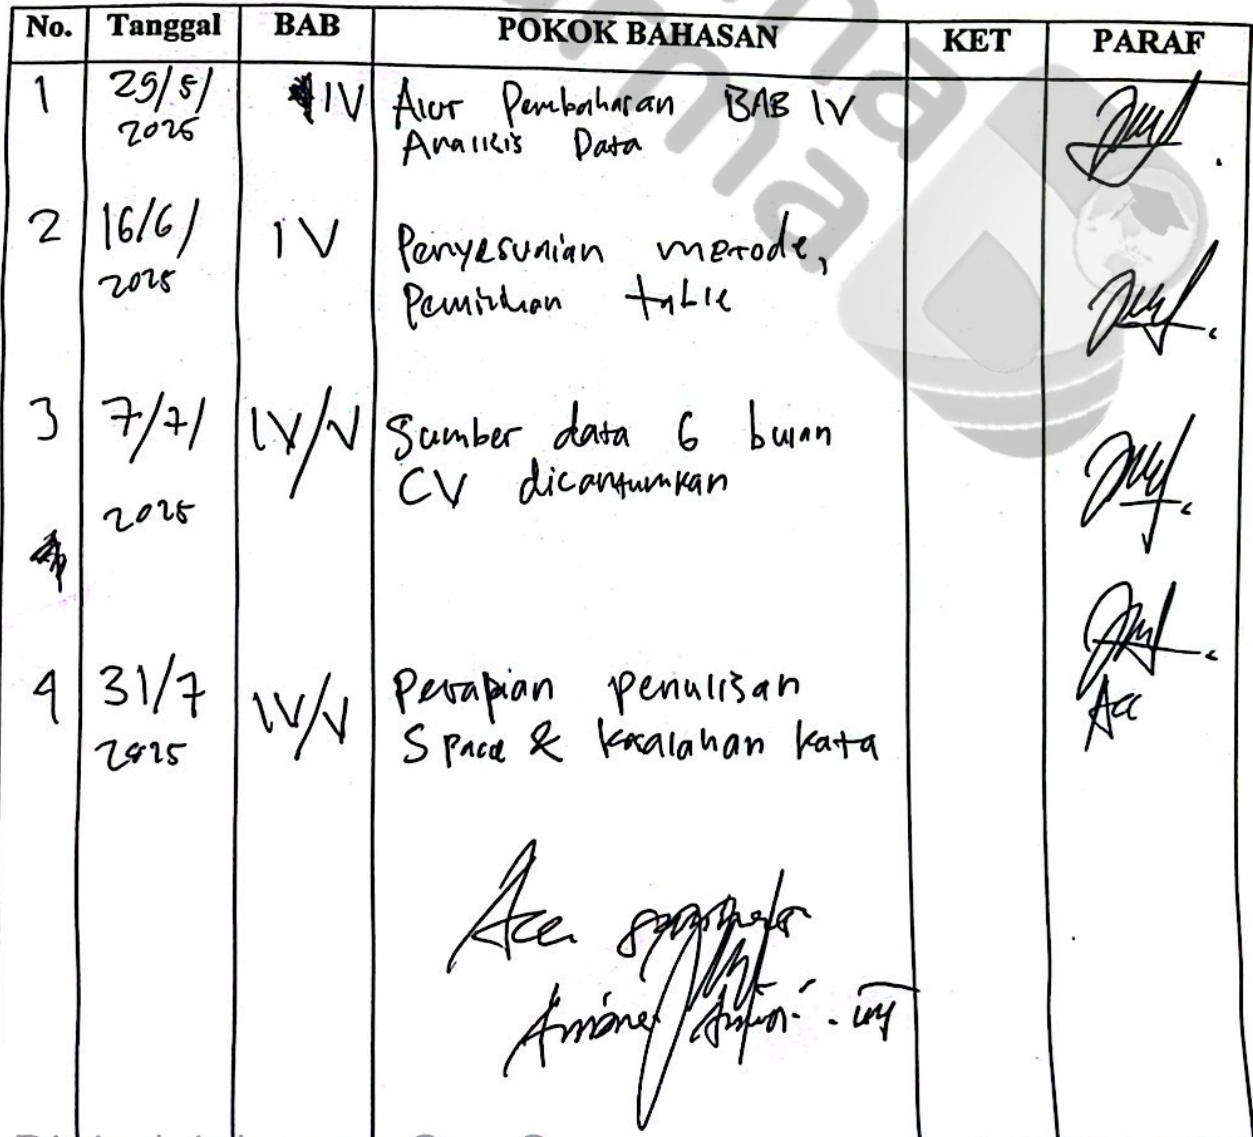 No. Tanggal BAB POKOK BAHASAN KET PARAF
1 29/5/ IV Alur Pembahasan BAB IV
2025 Analisis Data
2 16/6/ IV Penyesuaian metode,
2025 Pemilihan table
3 7/7/ IV/V Sumber data 6 bulan
2025 CV dicantumkan
4 31/7 IV/V Perapian penulisan
2025 Space & kesalahan kata
Acc
Acc